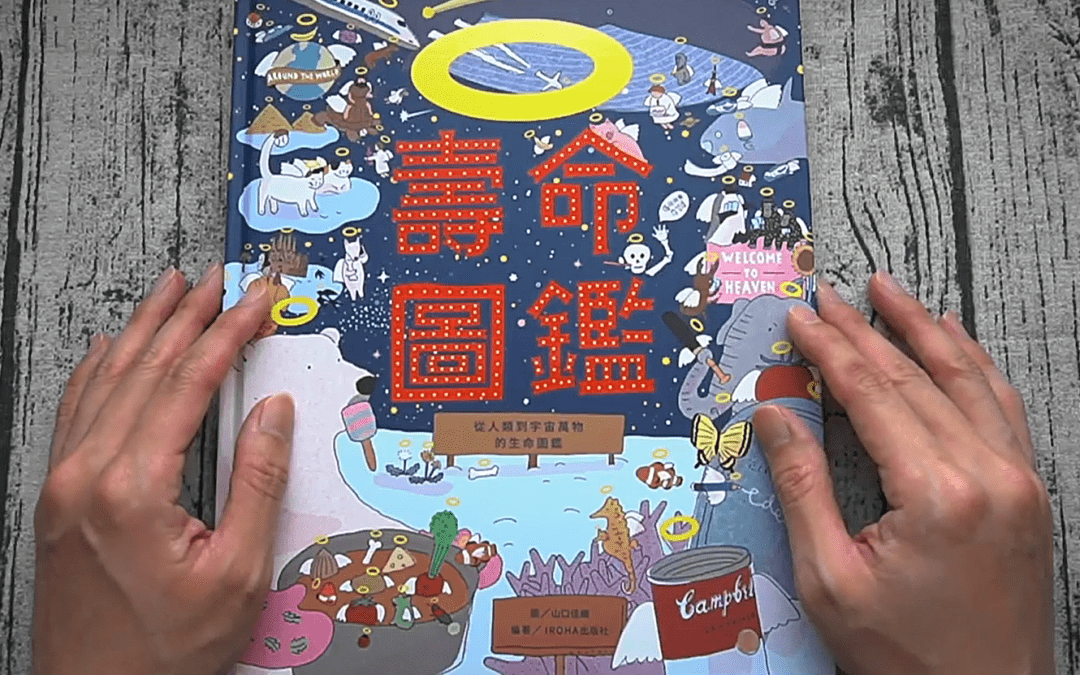 AROUND THE WORLD
壽命
圖鑑
WELCOME
TO
HEAVEN
從人類到宇宙萬物
的生命圖鑑
圖／山口佳織
編著／IROHA出版社
Campbe